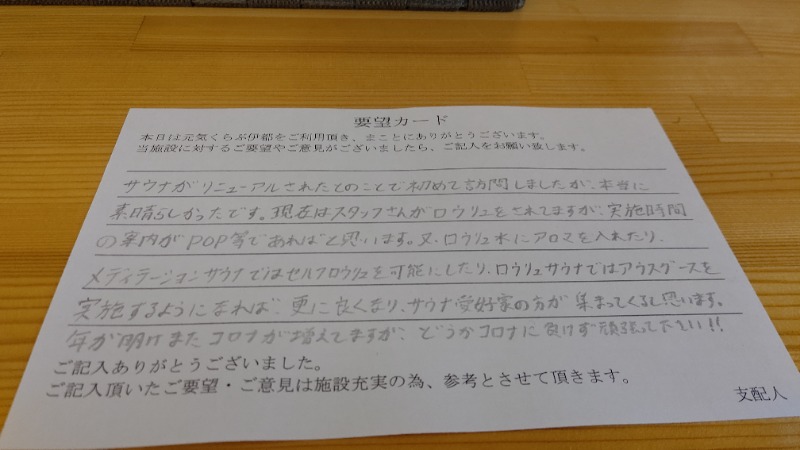 要望カード
本日は元気くらぶ伊都をご利用頂き、まことにありがとうございます。
当施設に対するご要望やご意見がございましたら、ご記入をお願い致します。
サウナがリニューアルされたとのことで初めて訪問しましたが、本当に
素晴らしかったです。現在はスタッフさんがロウリュをされてますが、実施時間
の案内がPOP等であればと思います。又、ロウリュ水にアロマを入れたり、
メディテーションサウナではセルフロウリュを可能にしたり、ロウリュサウナではアウスグースを
実施するようになれば、更に良くなり、サウナ愛好家の方が集まってくると思います。
年が明けまたコロナが増えてますが、どうかコロナに負けず頑張って下さい!!
ご記入ありがとうございました。
ご記入頂いたご要望・ご意見は施設充実の為、参考とさせて頂きます。
支配人